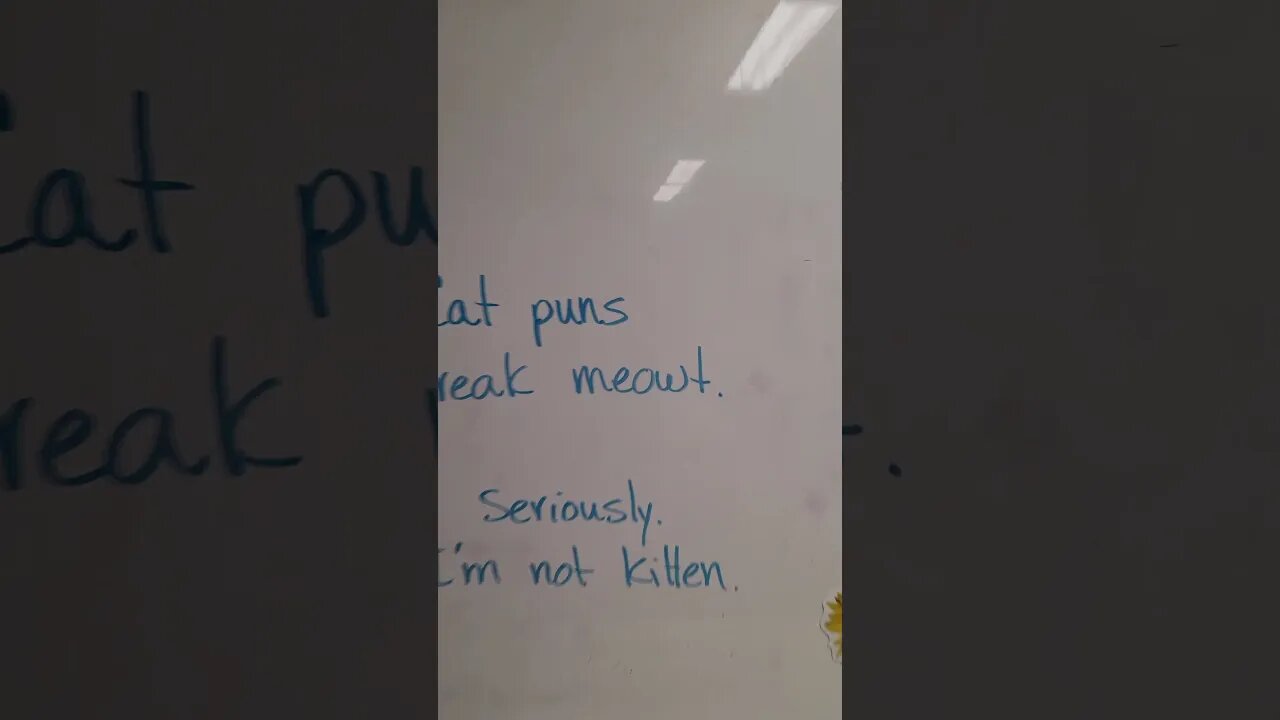 Cat puns
reak meowt.
Seriously.
I'm not kitten.